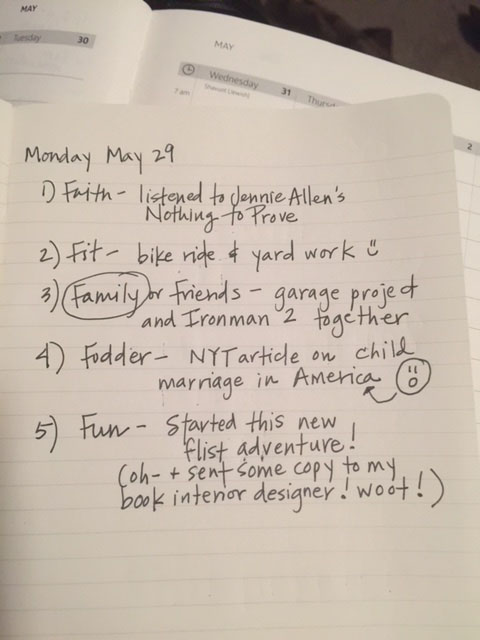 MAY
Tuesday 30
MAY
Wednesday 31
7 am Shavuot (Jewish)
Thurs
2
Monday May 29
1) Faith - listened to Jennie Allen's
Nothing to Prove
2) Fit - bike ride & yard work
3) Family or Friends - garage project
and Ironman 2 together
4) Fodder - NYT article on child
marriage in America
5) Fun - Started this new
flist adventure!
(oh - + sent some copy to my
book interior designer! woot!)